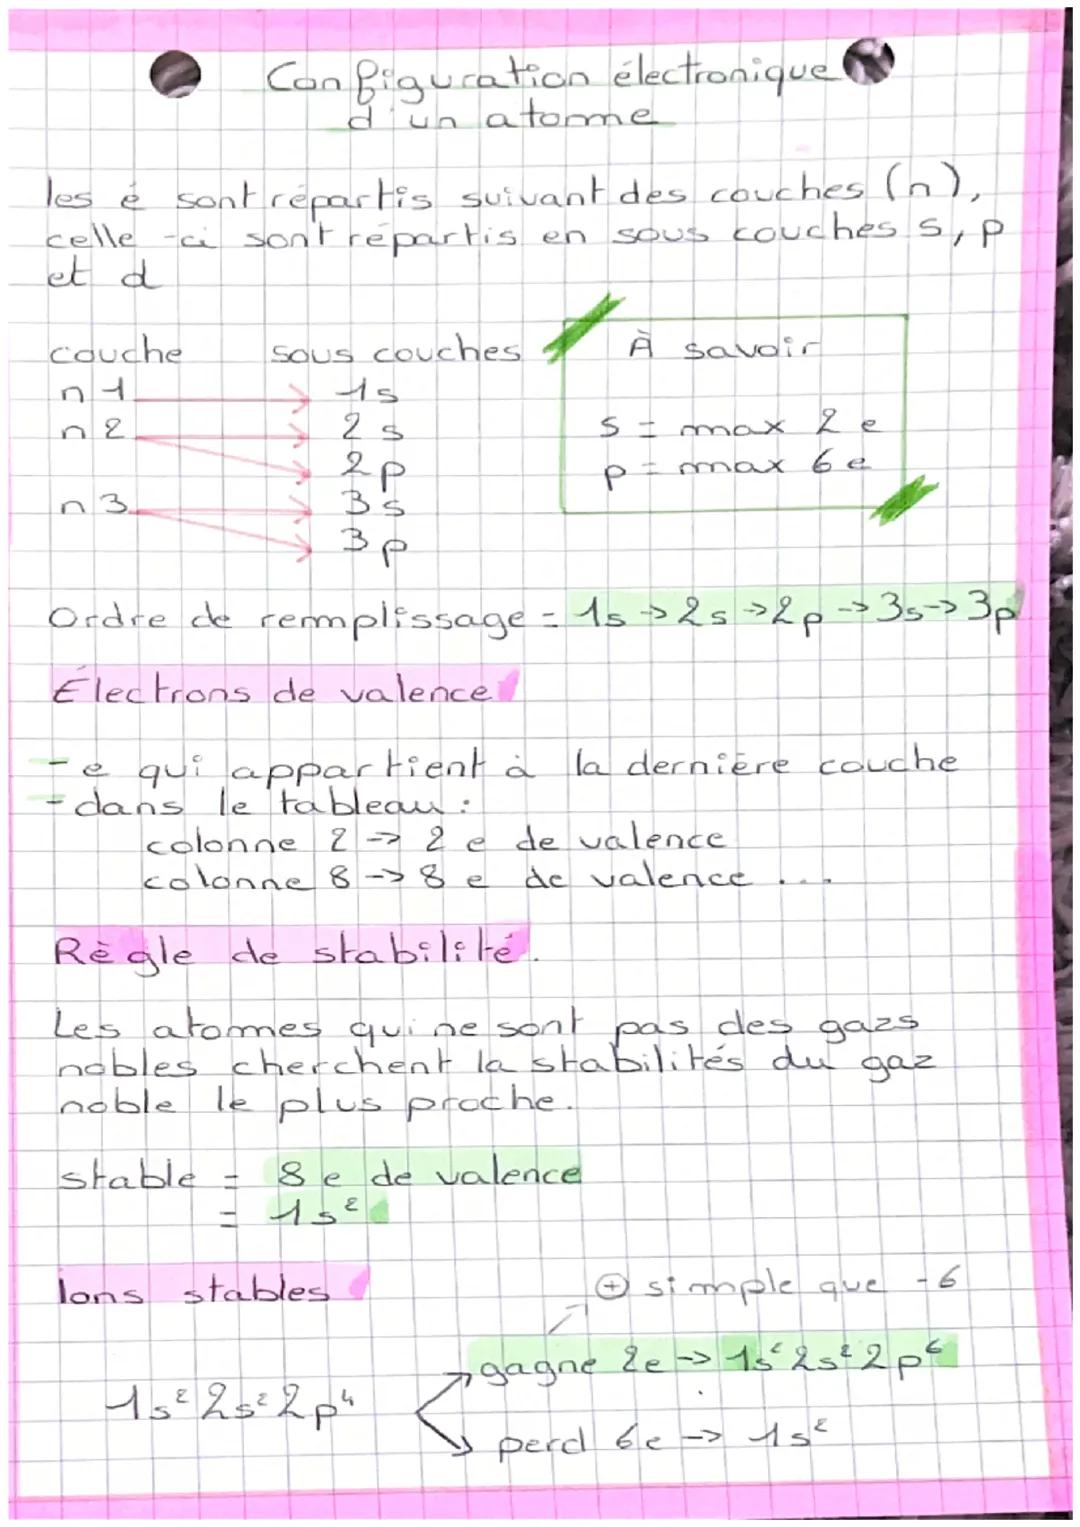 Configuration électronique
d'un atome
les é sont répartis suivant des couches (n),
celle-ci sont répartis en sous couches s, p
et d
couche sous couches À savoir
n 1 → 1s
n 2 → 2s s = max 2 e
2p p = max 6 e
n 3 → 3s
3p
Ordre de remplissage = 1s → 2s → 2p → 3s → 3p
Électrons de valence
- e qui appartient à la dernière couche
- dans le tableau :
colonne 2 → 2 e de valence
colonne 8 → 8 e de valence ...
Règle de stabilité.
Les atomes qui ne sont pas des gazs
nobles cherchent la stabilités du gaz
noble le plus proche.
stable = 8 e de valence
= 1s²
Ions stables
⊕ simple que -6
gagne 2e → 1s² 2s² 2p⁶
1s² 2s² 2p⁴
perd 6e → 1s²